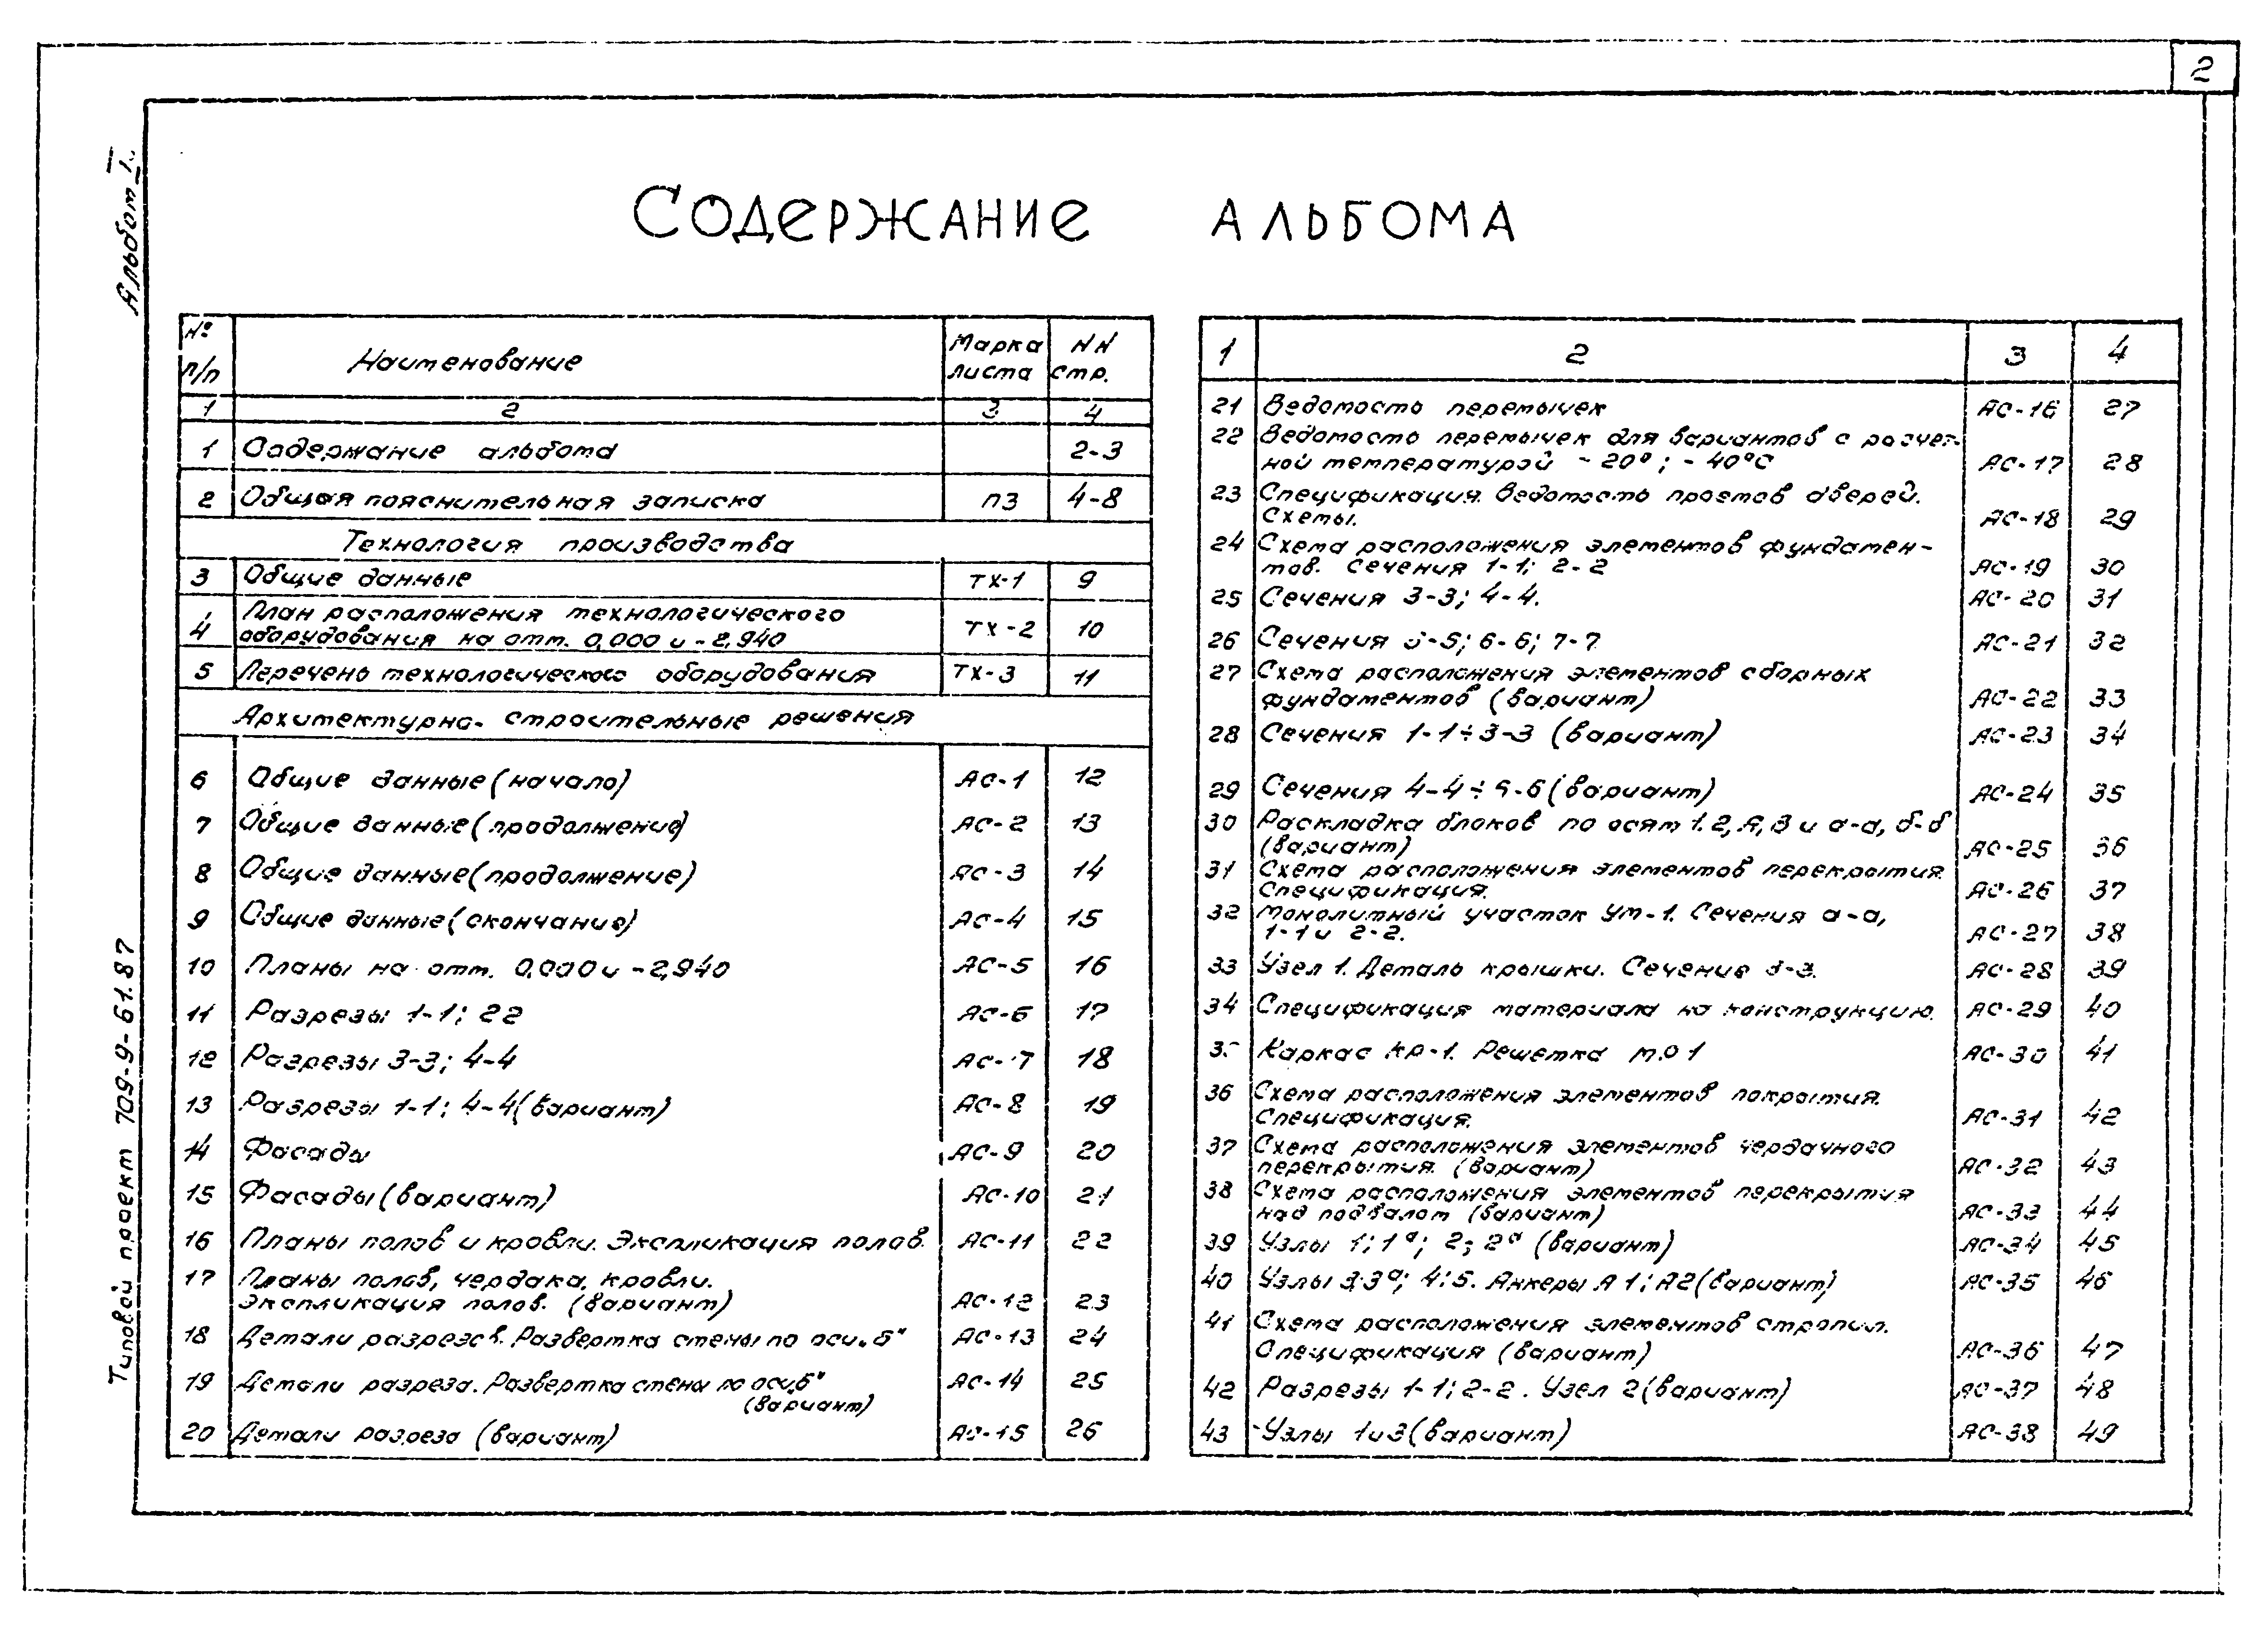 2
Альбом I.
Типовой проект 709-9-61.87
СОДЕРЖАНИЕ АЛЬБОМА
№ п/п Наименование Марка листа NN стр.
1 2 3 4
1 Содержание альбома 2-3
2 Общая пояснительная записка ПЗ 4-8
Технология производства
3 Общие данные ТХ-1 9
4 План расположения технологического
оборудования на отм. 0,000 и -2,940 ТХ-2 10
5 Перечень технологического оборудования ТХ-3 11
Архитектурно-строительные решения
6 Общие данные (начало) АС-1 12
7 Общие данные (продолжение) АС-2 13
8 Общие данные (продолжение) АС-3 14
9 Общие данные (окончание) АС-4 15
10 Планы на отм. 0,000 и -2,940 АС-5 16
11 Разрезы 1-1; 22 АС-6 17
12 Разрезы 3-3; 4-4 АС-7 18
13 Разрезы 1-1; 4-4 (вариант) АС-8 19
14 Фасады АС-9 20
15 Фасады (вариант) АС-10 21
16 Планы полов и кровли. Экспликация полов. АС-11 22
17 Планы полов, чердака, кровли.
Экспликация полов. (вариант) АС-12 23
18 Детали разрезов. Развертка стены по оси „Б" АС-13 24
19 Детали разреза. Развертка стены по оси „Б"
(вариант) АС-14 25
20 Детали разреза (вариант) АС-15 26
1 2 3 4
21 Ведомость перемычек АС-16 27
22 Ведомость перемычек для вариантов с расчет-
ной температурой -20°; -40°С АС-17 28
23 Спецификация. Ведомость проемов дверей.
Схемы. АС-18 29
24 Схема расположения элементов фундамен-
тов. Сечения 1-1; 2-2 АС-19 30
25 Сечения 3-3; 4-4. АС-20 31
26 Сечения 5-5; 6-6; 7-7 АС-21 32
27 Схема расположения элементов сборных
фундаментов (вариант) АС-22 33
28 Сечения 1-1÷3-3 (вариант) АС-23 34
29 Сечения 4-4÷6-6 (вариант) АС-24 35
30 Раскладка блоков по осям 1. 2, А, В и а-а, б-б
(вариант) АС-25 36
31 Схема расположения элементов перекрытия.
Спецификация. АС-26 37
32 Монолитный участок Ум-1. Сечения а-а,
1-1 и 2-2. АС-27 38
33 Узел 1. Деталь крышки. Сечение 3-3. АС-28 39
34 Спецификация материала на конструкцию. АС-29 40
Каркас Кр-1. Решетка АС-30 41
36 Схема расположения элементов покрытия.
Спецификация. АС-31 42
37 Схема расположения элементов чердачного
перекрытия. (вариант) АС-32 43
38 Схема расположения элементов перекрытия
над подвалом (вариант) АС-33 44
39 Узлы 1; 1ᵃ; 2; 2ᵃ (вариант) АС-34 45
40 Узлы 3; 3ᵃ; 4; 5. Анкеры А1; А2 (вариант) АС-35 46
41 Схема расположения элементов стропил.
Спецификация (вариант) АС-36 47
42 Разрезы 1-1; 2-2. Узел 2 (вариант) АС-37 48
43 Узлы 1 и 3 (вариант) АС-38 49